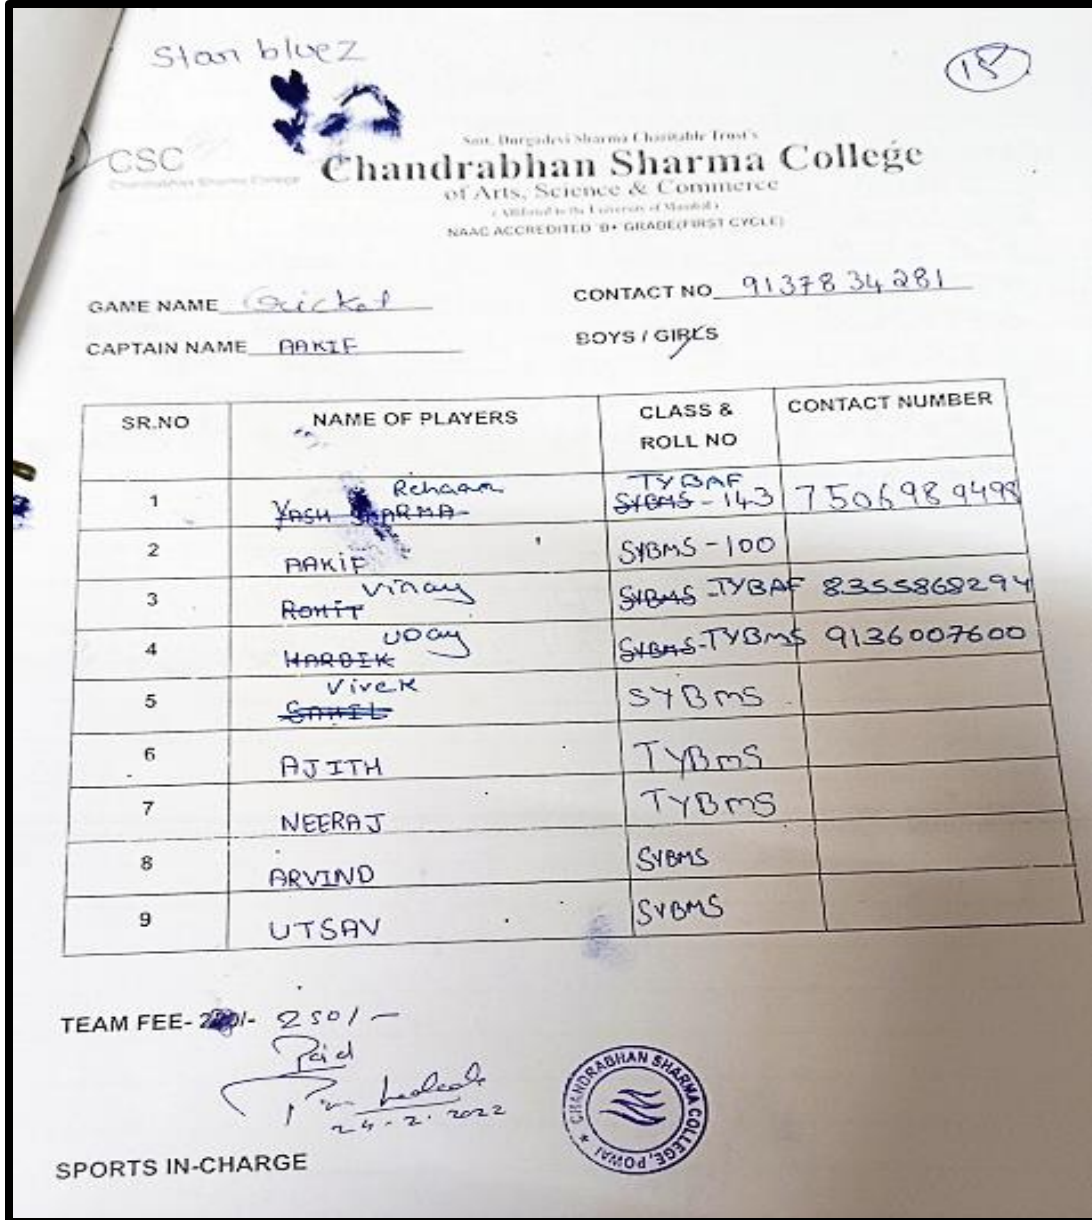 Stan bluez
15
CSC
Chandrabhan Sharma College
Smt. Durgadevi Sharma Charitable Trust's
Chandrabhan Sharma College
of Arts, Science & Commerce
( Affiliated to the University of Mumbai )
NAAC ACCREDITED 'B+ GRADE(FIRST CYCLE)
GAME NAME Cricket
CONTACT NO 91378 34281
CAPTAIN NAME AAKIF
BOYS / GIRLS
SR.NO NAME OF PLAYERS CLASS & ROLL NO CONTACT NUMBER
1 YASH SHARMA Rehaan SYBMS TYBAF - 143 7506989498
2 AAKIF SYBMS - 100
3 ROHIT Vinay SYBMS - TYBAF 8355868294
4 HARDIK UDay SYBMS - TYBMS 9136007600
5 SAHIL Vivek SYBMS
6 AJITH TYBMS
7 NEERAJ TYBMS
8 ARVIND SYBMS
9 UTSAV SYBMS
TEAM FEE- /- 250/-
Paid
24-2-2022
CHANDRABHAN SHARMA COLLEGE, POWAI
SPORTS IN-CHARGE